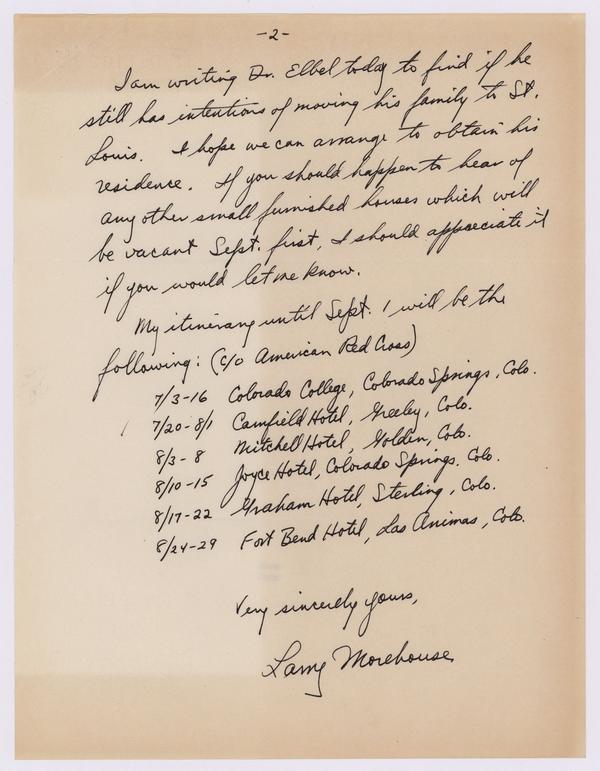 -2-
I am writing Dr. Elbel today to find if he
still has intentions of moving his family to St.
Louis. I hope we can arrange to obtain his
residence. If you should happen to hear of
any other small furnished houses which will
be vacant Sept. first, I should appreciate it
if you would let me know.
My itinerary until Sept. 1 will be the
following: (c/o American Red Cross)
7/3-16 Colorado College, Colorado Springs, Colo.
7/20-8/1 Camfield Hotel, Greeley, Colo.
8/3-8 Mitchell Hotel, Golden, Colo.
8/10-15 Joyce Hotel, Colorado Springs, Colo.
8/17-22 Graham Hotel, Sterling, Colo.
8/24-29 Fort Bend Hotel, Las Animas, Colo.
Very sincerely yours,
Larry Morehouse